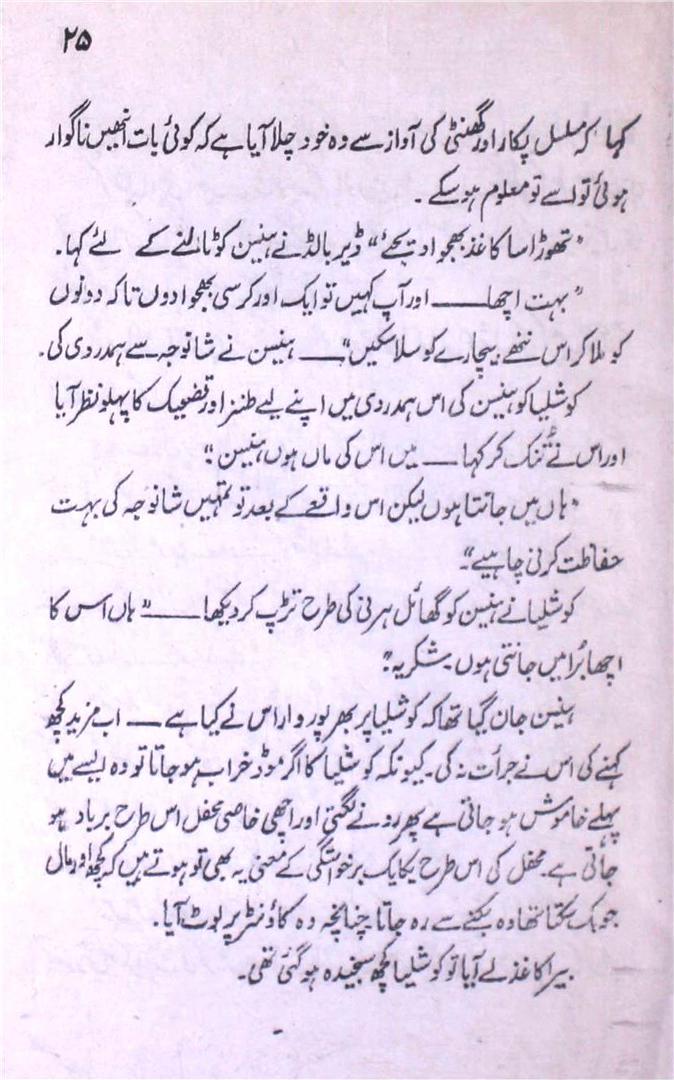 ۲۵
کہا کہ مسلسل پکار اور گھنٹی کی آواز سے وہ خود چلا آیا ہے کہ کوئی بات انھیں ناگوار
ہوئی تو اسے تو معلوم ہو سکے ۔
"تھوڑا سا کاغذ بھجوا دیجئے" ڈیر بالڈ نے ہینسن کو ٹالنے کے لئے کہا۔
"بہت اچھا ــــ اور آپ کہیں تو ایک اور کرسی بھجوا دوں تاکہ دونوں
کو ملا کر اس ننھے بیچارے کو سلا سکیں" ــــ ہینسن نے شانوجہ سے ہمدردی کی۔
کوشلیا کو ہینسن کی اس ہمدردی میں اپنے لیے طنز اور تضحیک کا پہلو نظر آیا
اور اس نے تُنک کر کہا ــــ میں اس کی ماں ہوں ہینسن !"
"ہاں میں جانتا ہوں لیکن اس واقعے کے بعد تو تمہیں شانوجہ کی بہت
حفاظت کرنی چاہیے"۔
کوشلیا نے ہینسن کو گھائل ہرنی کی طرح تڑپ کر دیکھا ــــ "ہاں اس کا
اچھا بُرا میں جانتی ہوں۔ شکریہ !"
ہینسن جان گیا تھا کہ کوشلیا پر بھر پور وار اس نے کیا ہے ــــ اب مزید کچھ
کہنے کی اس نے جرأت نہ کی۔ کیونکہ کوشلیا کا اگر موڈ خراب ہو جاتا تو وہ ایسے میں
پہلے خاموش ہو جاتی ہے پھر رونے لگتی اور اچھی خاصی محفل اس طرح برباد ہو
جاتی ہے۔ محفل کی اس طرح یکایک برخواستگی کے معنی یہ بھی تو ہوتے ہیں کہ کچھ اور مال
جو بک سکتا تھا وہ بکنے سے رہ جاتا چنانچہ وہ کاؤنٹر پر لوٹ آیا۔
بیرا کاغذ لے آیا تو کوشلیا کچھ سنجیدہ ہو گئی تھی۔